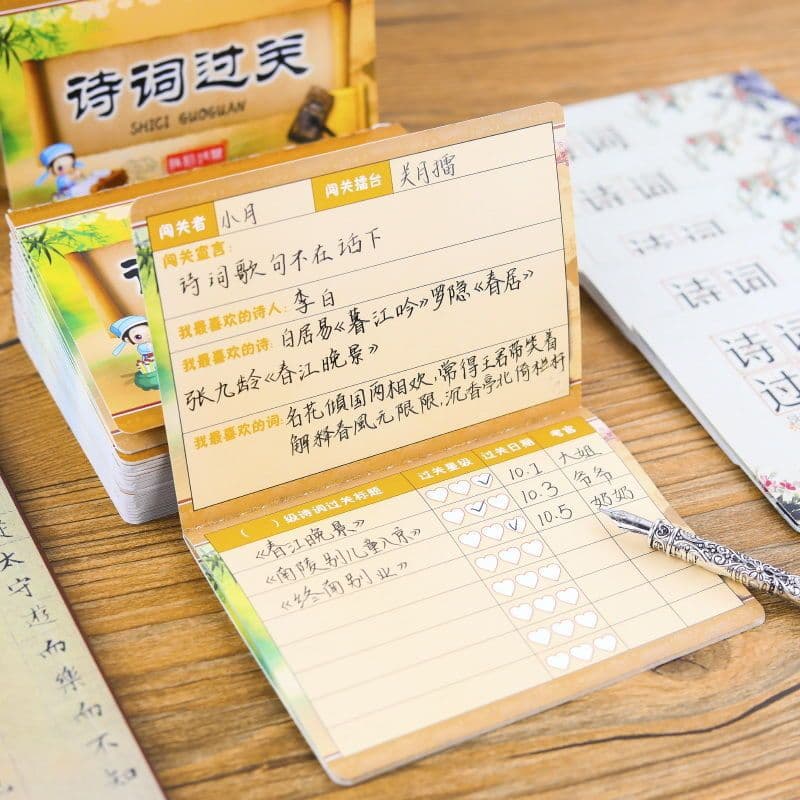 诗词过关
SHICI GUOGUAN
闯关者 小月 闯关擂台 关月擂
闯关宣言:
诗词歌句不在话下
我最喜欢的诗人: 李白
我最喜欢的诗: 白居易《暮江吟》罗隐《春居》
张九龄《春江晚景》
我最喜欢的词: 名花傾国两相欢,常得王君带笑着
解释春風元限限,沉香亭北倚栏杆
( )级诗词过关标题 过关星级 过关日期 考官
《春江晚景》 10.1 大姐
《南陵别儿童入京》 10.3 爷爷
《终南别业》 10.5 奶奶
太守遊而樂而不知
诗词
诗词
诗词
诗词
诗词
过